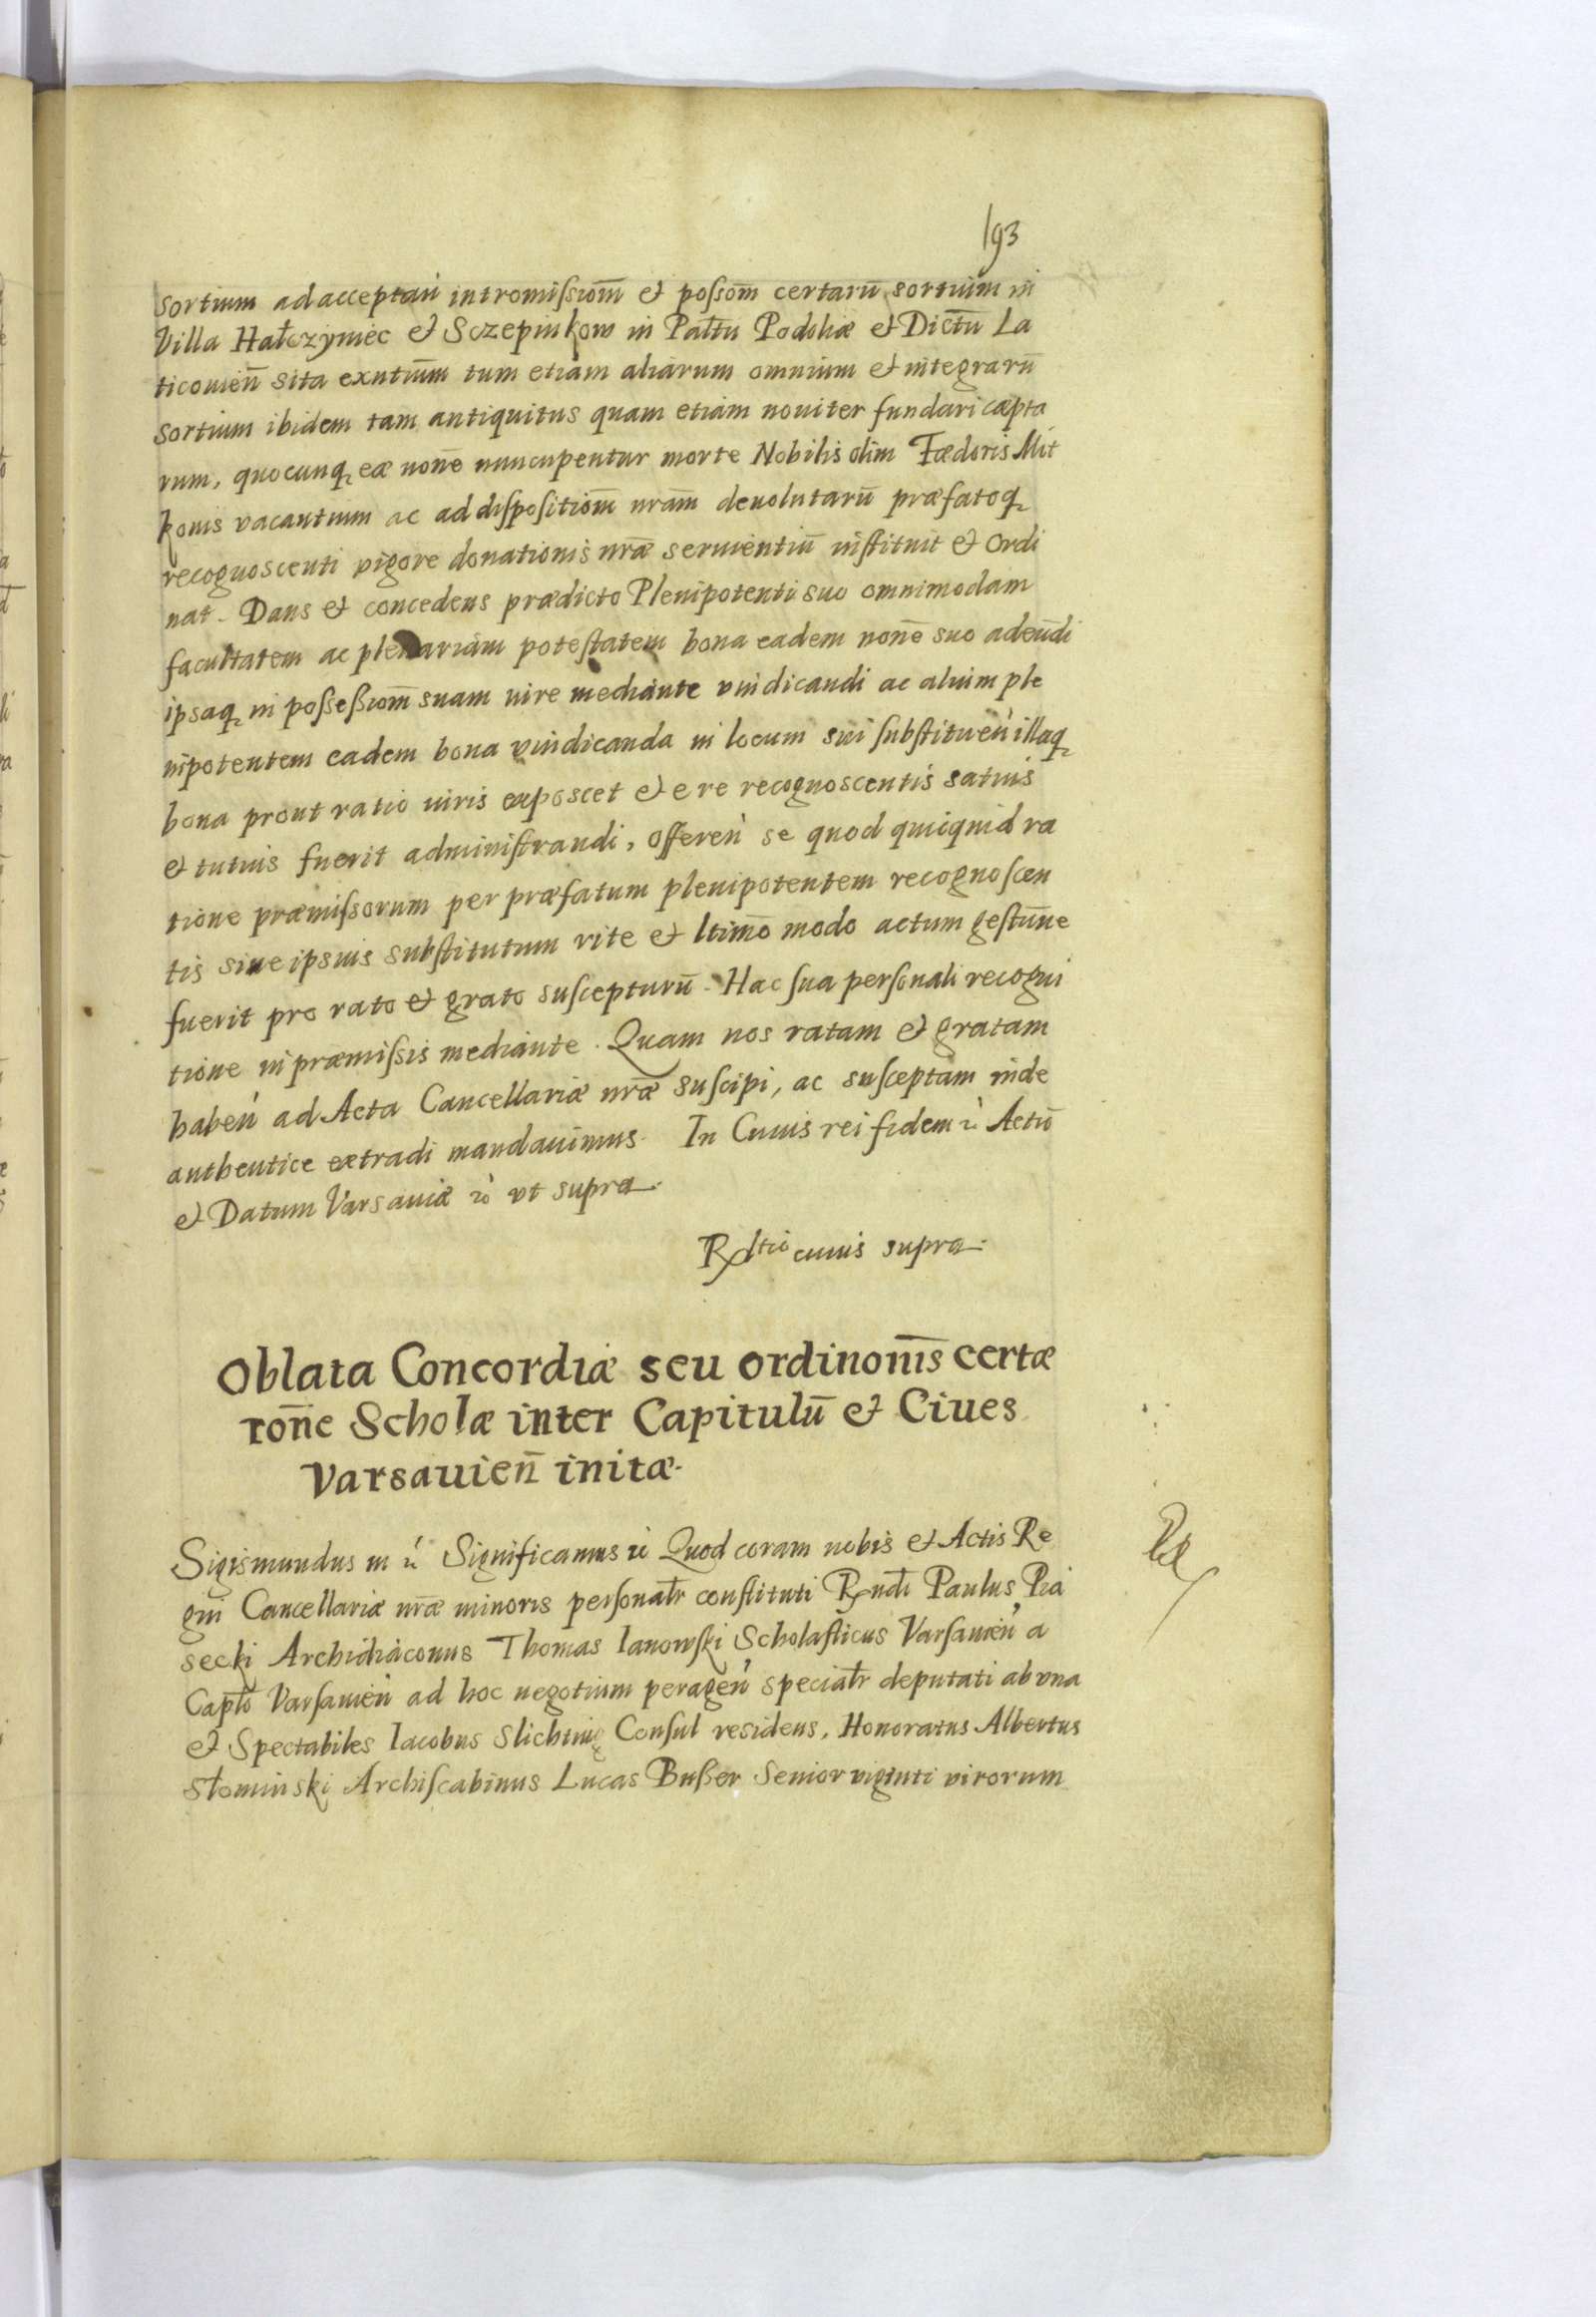 193
sortium ad acceptań intromissiom̄ et possom̄ certarū sortium in
Villa Hałczyniec et Sczepinkow in Pałtu Podoliæ et Dictū La
ticouien̄ sita exntium̄ tum etiam aliarum omnium et integrarū
sortium ibidem tam antiquitus quam etiam nouiter fundari cæpta
rum, quocunq eæ nōne nuncupentur morte Nobilis olim Fædoris Mit
konis vacantium ac ad dispositiom̄ nrām deuolutarū præfatoq
recognoscenti vigore donationis nrǣ seruientiū instituit et Ordi
nat. Dans et concedens prædicto Plenipotenti suo omnimodam
facultatem ac plenariam potestatem bona eadem nōne suo adeundi
ipsaq in possessiom̄ suam iure mediante vindicandi ac alium ple
nipotentem eadem bona vindicanda in locum sui substitueń illaq
bona prout ratio iuris exposcet et e re recognoscentis satius
et tutius fuerit administrandi, offereń se quod quiquid ra
tione præmissorum per præfatum plenipotentem recognoscen
tis siue ipsius substitutum rite et ltimō modo actum gestūne
fuerit pro rato et grato suscepturū. Hac sua personali recogni
tione in præmissis mediante. Quam nos ratam et gratam
habeń ad Acta Cancellariæ nrǣ suscipi, ac susceptam inde
authentice extradi mandauimus. In Cuius rei fidem ⁊ Actū
et Datum Varsauiæ ⁊ vt supra.
Rltio cuius supra.
Oblata Concordiæ seu ordinonīs certæ
rōne Scholæ inter Capitulū et Ciues
Varsauien̄ initæ.
Sigismundus III ⁊ Significamus ⁊ Quod coram nobis et Actis Re
gni Cancellariæ nrǣ minoris personałr constituti Rndi Paulus Pia
secki Archidiaconus Thomas Ianowski Scholasticus Varsauień a
Capło Varsauień ad hoc negotium perageń speciałr deputati ab vna
et Spectabiles Iacobus Slichting Consul residens, Honoratus Albertus
Słominski Archiscabinus Lucas Busser Senior viginti virorum